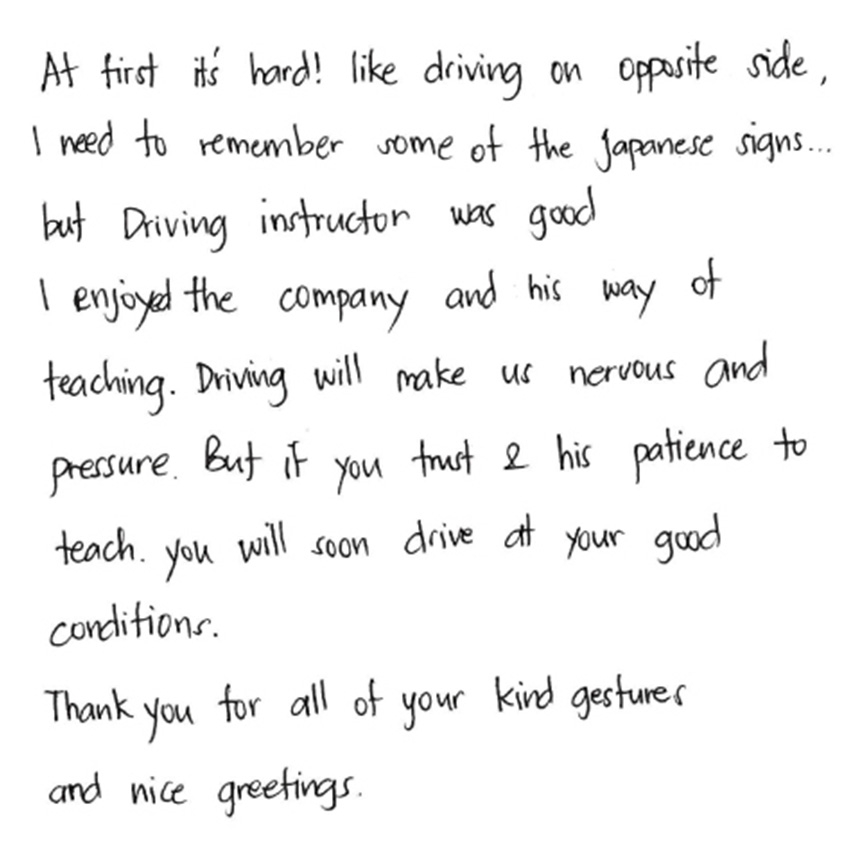 At first it's hard! like driving on opposite side,
I need to remember some of the Japanese signs...
but Driving instructor was good
I enjoyed the company and his way of
teaching. Driving will make us nervous and
pressure. But if you trust & his patience to
teach. you will soon drive at your good
conditions.
Thank you for all of your kind gestures
and nice greetings.